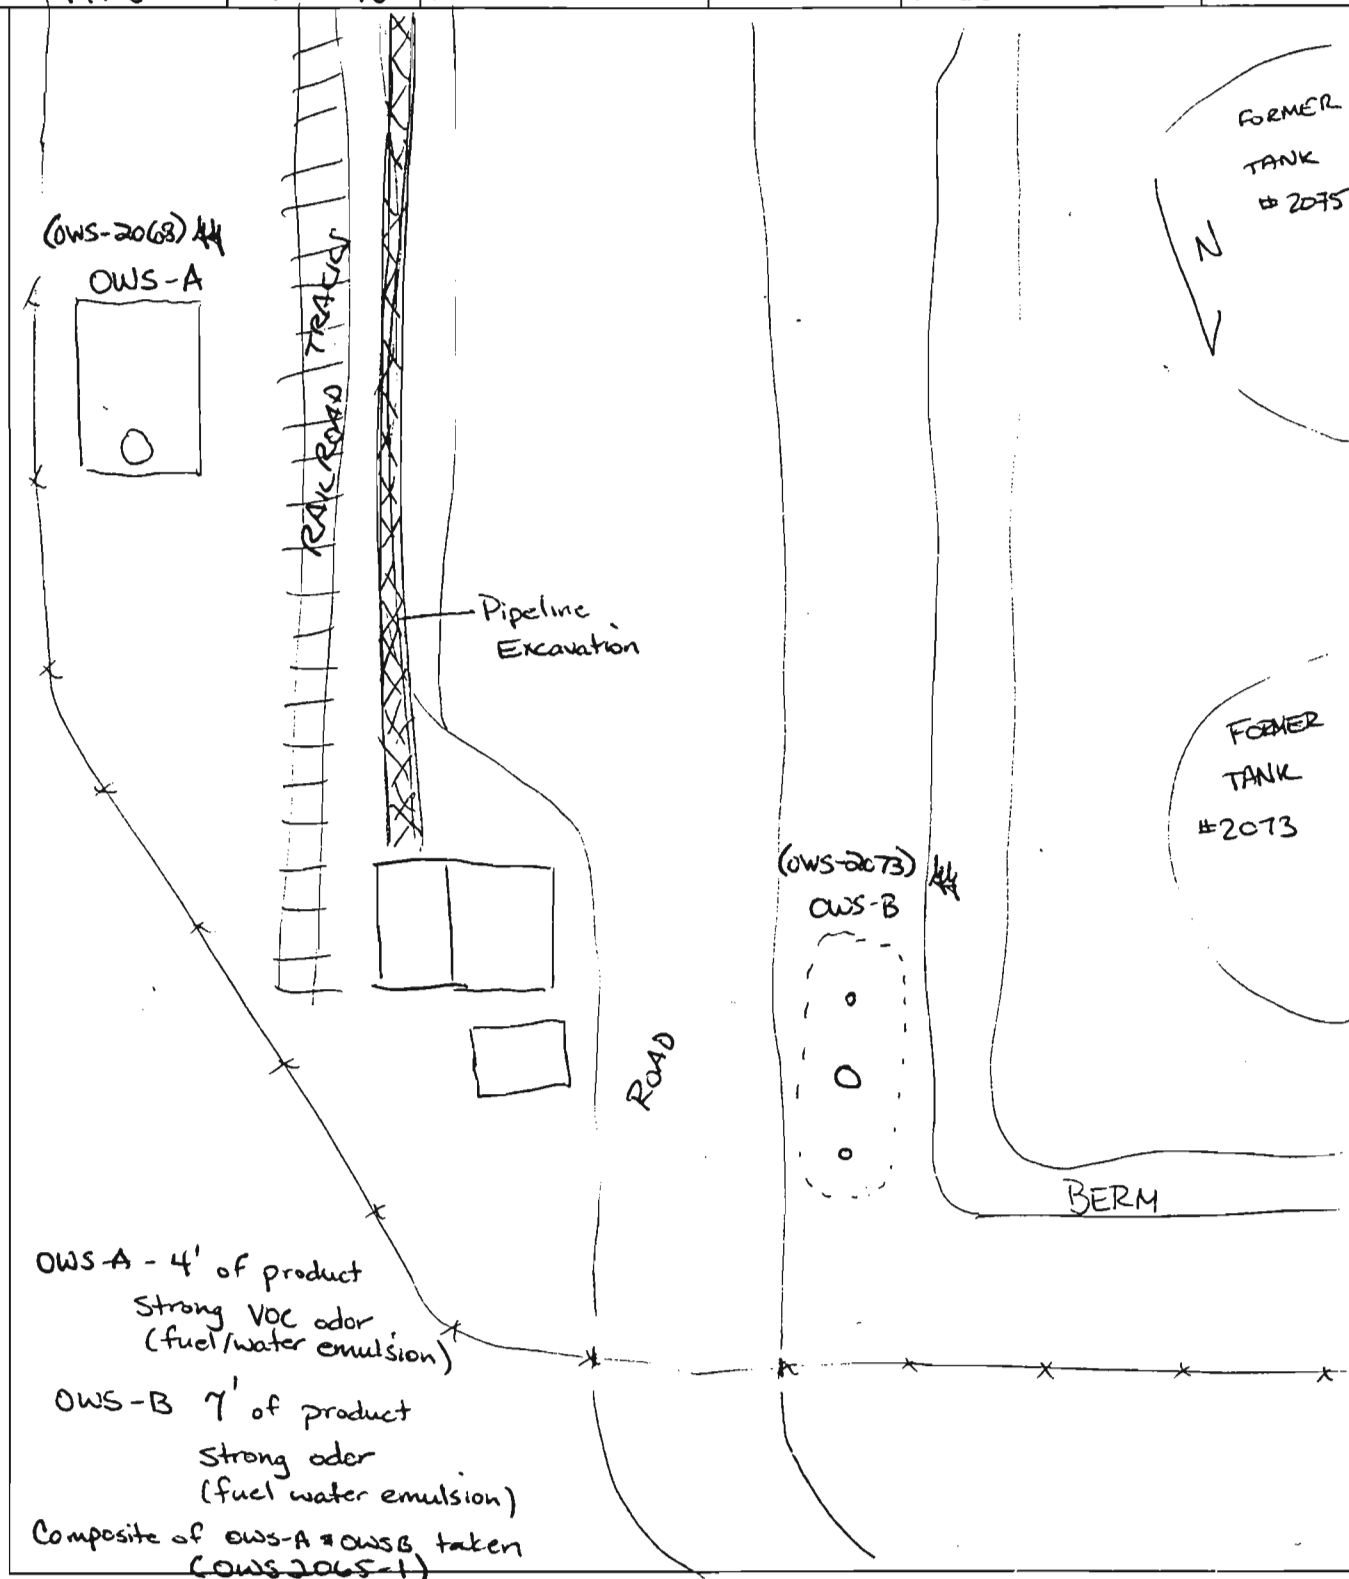 FORMER
TANK
# 2075
N
(OWS-2068)
OWS-A
RAILROAD TRACKS
Pipeline
Excavation
FORMER
TANK
#2073
(OWS-2073)
OWS-B
ROAD
BERM
OWS-A - 4' of product
Strong VOC odor
(fuel/water emulsion)
OWS-B 7' of product
Strong odor
(fuel water emulsion)
Composite of OWS-A & OWSB taken
(OWS2065-1)